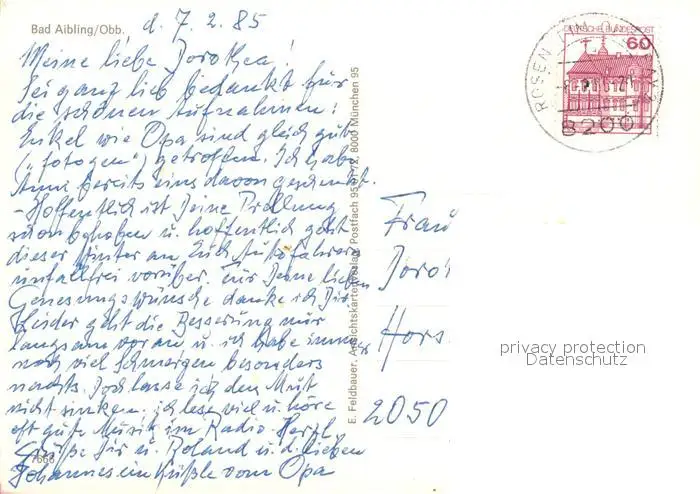 Bad Aibling/Obb. d. 7. 2. 85
Meine liebe Dorothea!
Sei ganz lieb bedankt für
die schönen Aufnahmen:
Enkel wie Opa sind gleich gut
("fotogen") getroffen. Ich habe
Anna bereits eins davon geschenkt.
- Hoffentlich ist Deine Prellung
schon behoben u. hoffentlich geht
dieser Winter an Euch Autofahrern
unfallfrei vorüber. Für Deine lieben
Genesungswünsche danke ich Dir.
Leider geht die Besserung nur
langsam voran u. ich habe immer
noch viel Schmerzen besonders
nachts. Doch lasse ich den Mut
nicht sinken. ich lese viel u. höre
oft gute Musik im Radio. Herzl.
Grüße Dir u. Roland u. d. lieben
Johannes ein Küßle vom Opa
7668
E. Feldbauer, Ansichtskartenverlag, Postfach 95 01 72, 8000 München 95
DEUTSCHE BUNDESPOST
60
ROSENHEIM
8200
Frau
Dorot
Hors
2050
privacy protection
Datenschutz